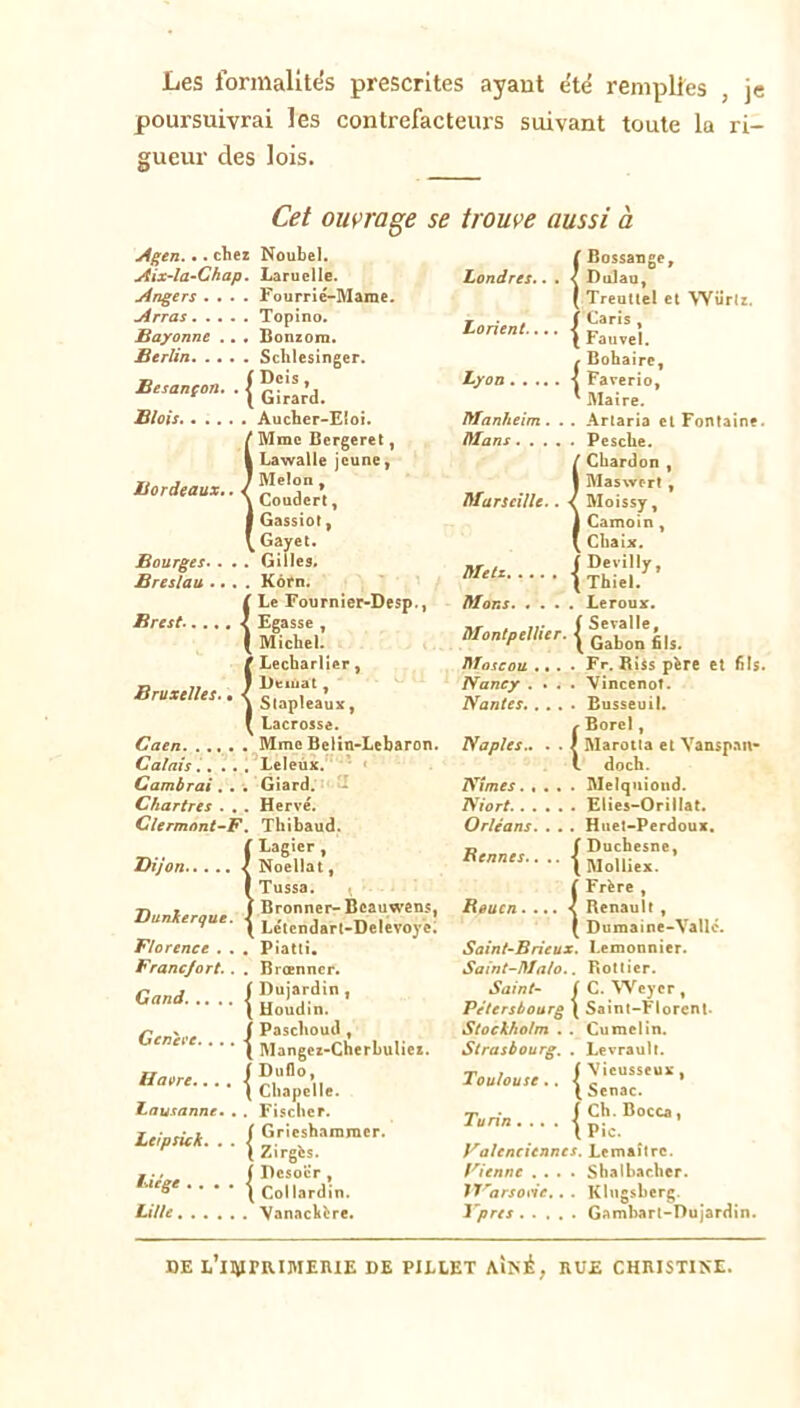 Les formalités prescrites ayant été remplies , je
poursuivrai les contrefacteurs suivant toute la ri-
gueur des lois.
Cet ouvrage se trouve aussi à
Agen. . . chez Noubel.
Aix-la-Chap. Laruelle.
Angers . . . . Fourrié-Mame.
Arras . . . . . Topino.
Bayonne . . . Bonzom.
Berlin. . . . . Schlesinger.
Besançon. . { Deis ,
Girard.
Blois. . . . . . Aucher-Eloi.
Bordeaux. . { Mme Bergeret ,
Lawalle jeune,
Melon ,
Coudert,
Gassiot,
Gayet.
Bourges. . . . Gilles.
Breslau . . . . Korn.
Brest. . . . . { Le Fournier-Desp.,
Egasse ,
Michel.
Bruxelles. . { Lecharlier,
Demat ,
Stapleaux,
Lacrosse.
Caen. . . . . . Mme Belin-Lebaron.
Calais . . . . . Leleux.
Cambrai . . . Giard.
Chartres . . . Hervé.
Clermont-F. Thibaud.
Dijon. . . . . { Lagier ,
Noellat,
Tussa.
Dunkerque. { Bronner-Beauwens,
Létendart-Delevoye.
Florence . . . Piatti.
Francfort. . . Brœnner.
Gand. . . . . { Dujardin ,
Houdin.
Genève. . . . { Paschoud ,
Mangez-Cherbuliez.
Havre. . . . { Duflo,
Chapelle.
Lausanne. . . Fischer.
Leipsick. . . { Grieshammer.
Zirgès.
Liége . . . . { Desoër ,
Collardin.
Lille . . . . . . Vanackère.
Londres. . . { Bossange,
Dulau,
Treuttel et Würtz.
Lorient. . . . { Caris ,
Fauvel.
Lyon . . . . . { Bohaire,
Faverio,
Maire.
Manheim . . . Artaria et Fontaine.
Mans . . . . . Pesche.
Marseille. . { Chardon ,
Maswert ,
Moissy ,
Camoin ,
Chaix.
Metz. . . . . { Devilly,
Thiel.
Mons. . . . . Leroux.
Montpellier. { Sevalle,
Gabon fils.
Moscou . . . . Fr. Riss père et fils.
Nancy . . . . Vincenot.
Nantes. . . . . Busseuil.
Naples. . . . { Borel ,
Marotta et Vanspan-
doch.
Nîmes . . . . . Melquiond.
Niort. . . . . . Elies-Orillat.
Orléans. . . . Huet-Perdoux.
Rennes. . . . { Duchesne,
Molliex.
Rouen . . . . { Frère ,
Renault ,
Dumaine-Vallé.
Saint-Brieux. Lemonnier.
Saint-Malo. . Rottier.
Saint- { C. Weyer ,
Pétersbourg Saint-Florent.
Stockholm . . Cumelin.
Strasbourg. . Levrault.
Toulouse . . { Vieusseux ,
Senac.
Turin . . . . { Ch. Bocca ,
Pic.
Valenciennes. Lemaître.
Vienne . . . . Shalbacher.
Warsovie. . . Klugsberg.
Ypres . . . . . Gambart-Dujardin.
DE L'IMPRIMERIE DE PILLET AÎNÉ, RUE CHRISTINE.